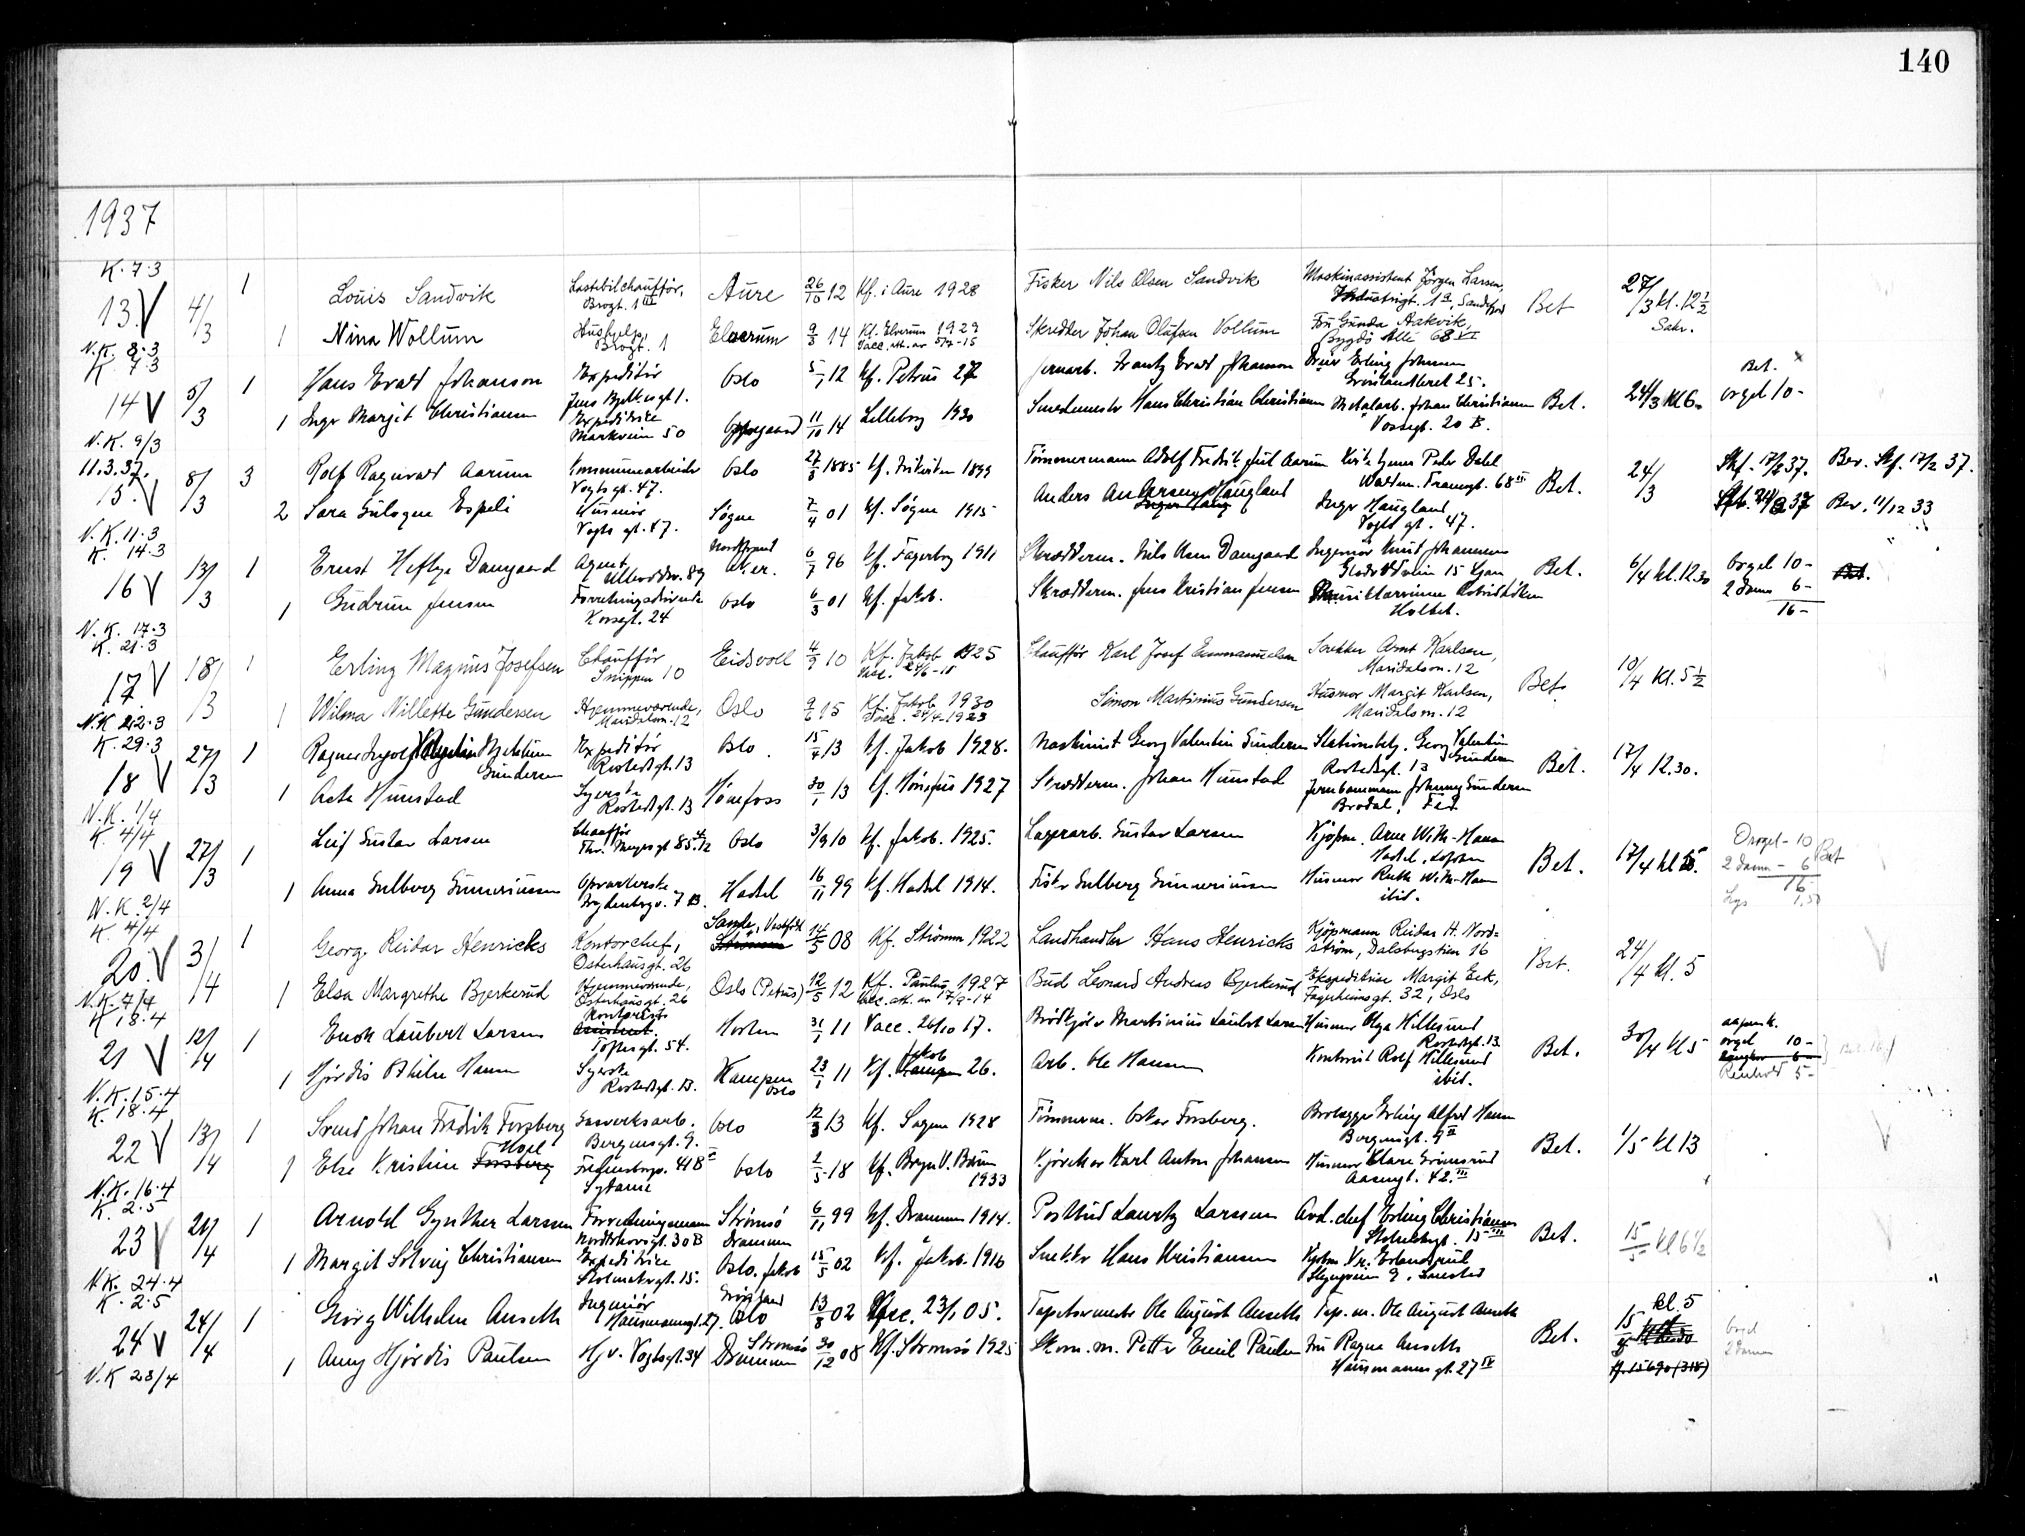 140
1937
K. 7.3
13. V 4/3 1 Louis Sandvik Lastebilchauffør, Brogt. 1 III Aure 26/10 12 Kf. i Aure 1928 Fisker Nils Olsen Sandvik Maskinassistent Jørgen Larsen, Industrigt. 1a, Sandefjord Bet 27/3 kl. 12 1/2 Sakr.
1 Nina Wollum Hushjelp, Brogt. 1 Elverum 9/3 14 Kf. Elverum 1929 Vacc. att. av 5/7-15 Skredder Johan Olufsen Vollum Fru Gunda Aakvik, Bygdø Alle 68 VI
N.K. 8.3
K. 7.3
14 V 5/3 1 Hans Evald Johanson Expeditør Jens Bjelkesgt 1. Oslo 5/1 12 Kf. Petrus 27 Jernarb. Frantz Evald Johanson Erling Johansen Grønlandleret 25. Bet. 24/3 Kl 6. Bet. orgel 10-
1 Inger Margit Christiansen Expeditrice Markveien 50 Oppegaard 11/10 14 Lilleborg 1930 Smedmester Hans Christian Christiansen Metalarb. Johan Christiansen Vossegt. 20 B.
N.K. 9/3
11.3.37.
15. V 8/3 3 Rolf Ragnvald Aarum Kommunearbeider Vogtsgt. 47. Oslo 27/3 1885 Kf. 1899 Tømmermann Adolf Fredrik Jul Aarum Peder Dahl Waldem. Thranesgt. 68 III Bet. 24/3 Skf. 17/2 37. Bev. Skf. 17/2 37.
2 Sara Gulogne Espeli Husmor Vogts gt. 47. Søgne 7/4 01 Kf. Søgne 1915 Anders Haugland Inger Haugland Vogts gt. 47. Bev. 11/12 33
N.K. 11.3
K. 14.3
16 V 13/3 1 Ernst Heftye Damgaard Agent, Ullevoldsv. 89 Nordstrand Aker. 6/7 96 Kf. Fagerborg 1911 Skrædderm. Nils Damgaard Ingeniør Knut Johannesen 15 Ljan Bet. 6/4 kl. 12.30 Orgel 10- 2 Damer 6- 16-
1 Gudrun Jensen Forretningsdrivende Korsgt. 24 Oslo 6/3 01 Kf. Jakob. Skrædderm. Jens Kristian Jensen Holtet.
N.K. 17.3
K. 21.3
17. V 18/3 1 Erling Magnus Josefsen Chauffør Snippen 10 Eidsvoll 4/9 10 Kf. Jakob 1925 Vacc. 24/6-15 Chauffør Karl Josef Emmanuelsen Snekker Arnt Karlsen, Maridalsvn. 12 Bet. 10/4 Kl. 5 1/2
1 Wilma Villette Gundersen Hjemmeværende, Maridalsvn. 12 Oslo 9/6 15 Kf. Jakob 1930 Vacc. 24/4-1923 Simon Martinius Gundersen Husmor Margit Karlsen, Maridalsvn. 12
N.K. 22.3
K. 29.3
18 V 27/3 1 Ragnar Ingolf Valentin Gundersen Expeditør Rostedsgt. 13 Oslo. 15/4 13 Kf. Jakob 1928. Maskinist Georg Valentin Gundersen Stationsbetj. Georg Valentin Gundersen Rostedsgt. 13 Bet. 17/4 12.30.
1 Asta Hunstad Syerske Rostedsgt. 13 Hønefoss 30/1 13 Kf. Hønefoss 1927 Skrædderm. Johan Hunstad Jernbanemann Johnny Gundersen
N.K. 1/4
K. 4/4
19 V 27/3 1 Leif Gustav Larsen Chauffør Thv. Meyersgt 85 Oslo 3/9 10 Kf. Jakob. 1925. Lagerarb. Gustav Larsen Kjøpm. Arne With-Hansen Hadsel, Lofoten Bet. 17/4 kl 5. Orgel- 10 2 Damer - 6 16 Lys 1,50 Bet
1 Anna Solberg Gunneriussen Opvarterske Brydenbergv. 7 B. Hadsel 16/11 99 Kf. Hadsel 1914. Fisker Solberg Gunneriussen Husmor Ruth With-Hansen ibid.
N.K. 2/4
K. 4/4
20. V 3/4 1 Georg Reidar Henricks Kontorchef, Osterhausgt. 26 Sande, Vestfold 14/5 08 Kf. Strømm 1922 Landhandler Hans Henricks Kjøpmann Reidar H. Nordstrøm, Dalsbergstien 16 Bet. 24/4 kl. 5
1 Elsa Margrethe Bjerkerud Hjemmeværende, Osterhausgt. 26 Oslo (Petrus) 12/5 12 Kf. Paulus 1927 Vacc. att. av 17/9-14 Bud Leonard Andreas Bjerkerud Ekspeditrise Margit Eek, Fagerheimsgt. 32, Oslo
N.K. 7/4
K 18.4
21 V 12/4 1 Enok Laubert Larsen Kontorist Toftesgt. 54. Horten 31/1 11 Vacc. 26/10 17. Brødkjører Martinius Laubert Larsen Husmor Olga Hillesund Rostedsgt. 13 Bet. 30/4 kl 5 orgel 10- Reinhold 5-
1 Hjørdis Othilie Hansen Syerske Rostedsgt. 13. Kampen Oslo 23/1 11 Kf. Jakob 26. Arb. Ole Hansen Kontorist Rolf Hillesund ibid.
N.K. 15.4
K. 18.4
22 V 13/4 1 Svend Johan Fredrik Forsberg Gasverksarb. Bergensgt. 9. Oslo 12/3 13 Kf. Sagene 1928 Tømmerm. Oskar Forsberg. Brolegger Erling Alfred Hansen Bergensgt. 9 II Bet. 1/5 kl 13
1 Else Kristine Fredensborgv. 41 B Sydame Oslo 2/5 18 Kf. Bryn V. Bærum 1933 Kjørekar Karl Anton Johansen Husmor Klara Grimsrud Aasengt. 42. III
N.K. 16.4
K. 2.5
23 V 21/4 1 Arnold Gynther Larssen Forretningsmann 30 B Strømsø Drammen 6/11 99 Kf. Drammen 1914. Postbud Lauritz Larssen Avd. chef Erling Christiansen Stolmakergt. 15 III Bet. 15/5 kl 6 1/2
1 Margit Solveig Christiansen Expeditrice Stolmakergt. 15. Oslo. Jakob 15/5 02 Kf. Jakob. 1916 Snekker Hans Kristiansen
N.K. 24.4
K. 2.5
24 V 24/4 1 Georg Wilhelm Anseth Ingeniør Hausmannsgt. 27. Grønland Oslo 13/8 02 Vacc. 23/1 05. Tapetserermester Ole August Anseth Tap. m. Ole August Anseth Bet. 15/5 kl. 5 orgel 2 Damer
1 Amy Hjørdis Paulsen Hjv. Vogtsgt. 34 Strømsø Drammen 30/12 08 Kf. Strømsø 1925 Skom. m. Petter Emil Paulsen Fru Ragna Anseth Hausmannsgt. 27 IV
N.K 23/4